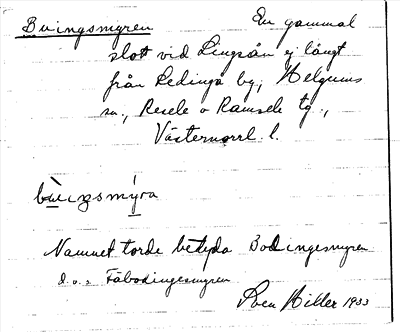 Buingsmyren En gammal
slott vid Lingsån ej långt
från Ledinge by, Helgums
sn., Resele o Ramsele tg.,
Västernorrl. l.
bùingsmýra
Namnet torde betyda Bodingesmyren
d.v.s Fäbodingesmyren
Sven Hiller 1933